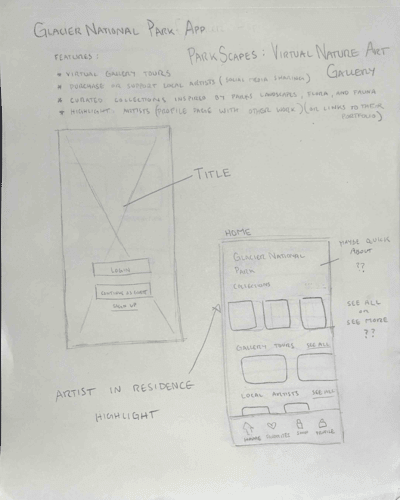 GLACIER NATIONAL PARK APP
PARKSCAPES: VIRTUAL NATURE ART
GALLERY
FEATURES:
* VIRTUAL GALLERY TOURS
* PURCHASE OR SUPPORT LOCAL ARTISTS (
* CURATED COLLECTIONS INSPIRED BY PARKS LANDSCAPES, FLORA, AND FAUNA
* HIGHLIGHT ARTISTS (PROFILE PAGE WITH OTHER WORK) ( LINKS TO THEIR
PORTFOLIO)
TITLE
LOGIN
CONTINUE AS GUEST
SIGN UP
ARTIST IN RESIDENCE
HIGHLIGHT
HOME
GLACIER NATIONAL
PARK
GALLERY TOURS SEE ALL
LOCAL ARTISTS SEE ALL
FAVORITES SHOP PROFILE
MAYBE QUICK
ABOUT
??
SEE ALL
OR
SEE MORE
??